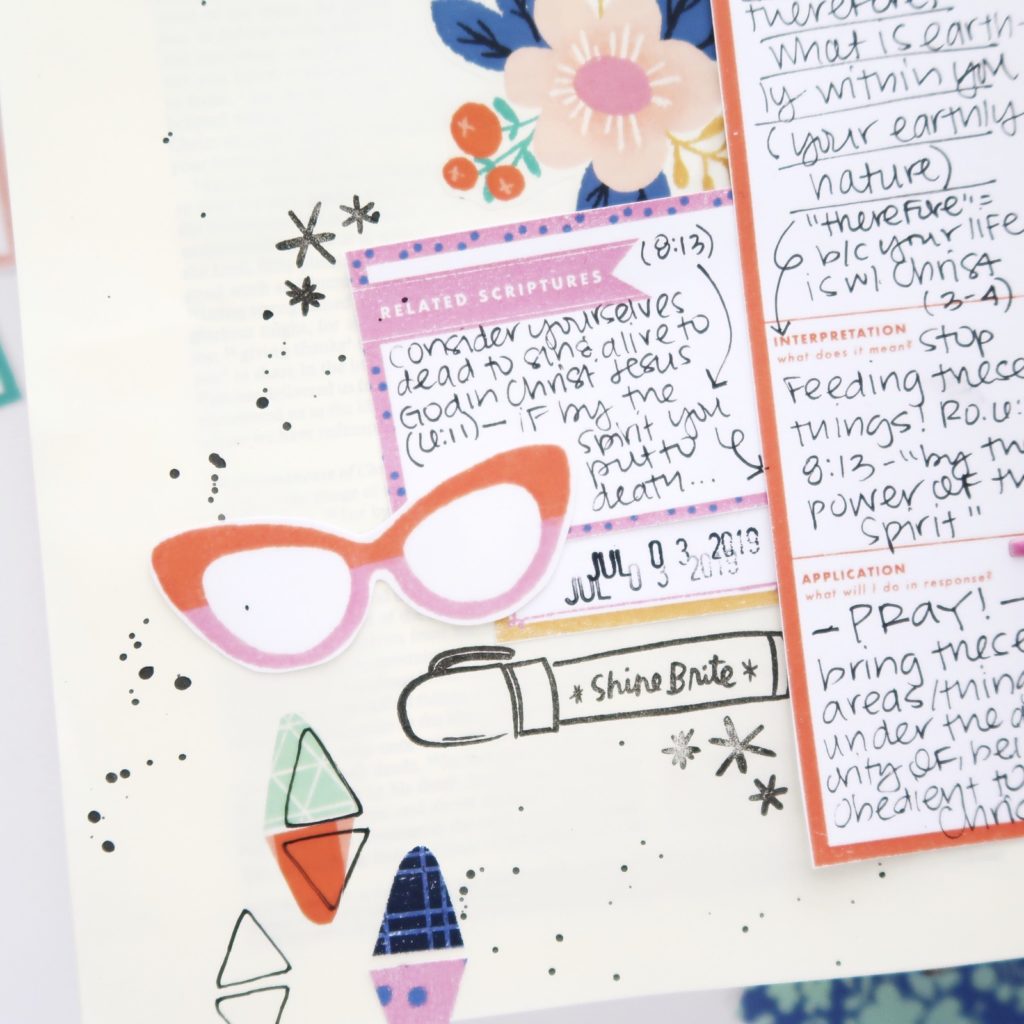 (8:13)
RELATED SCRIPTURES
Consider yourselves
dead to sin & alive to
God in Christ Jesus
(6:11) — if by the
spirit you
put to
death...
JUL 03 2019
JUL 03 2019
* Shine Brite *
therefore,
what is earth-
ly within you
(your earthly
nature)
"therefore" =
b/c your life
is w/ Christ
(3-4)
INTERPRETATION
what does it mean? Stop
Feeding these
things! Ro. 6:
8:13 - "by th
power of th
spirit"
APPLICATION
what will I do in response?
- PRAY! -
bring these
areas/thing
under the
of, bei
obedient to
Chris